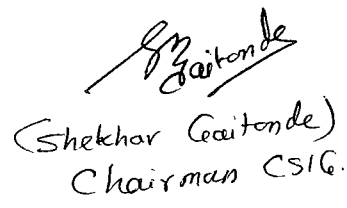 Gaitonde
(Shekhar Gaitonde)
Chairman CSIG.